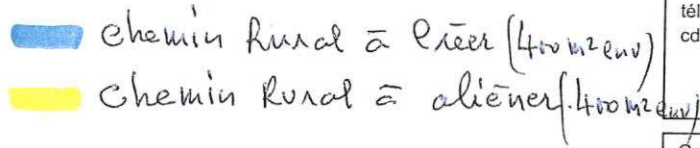 chemin Rural à créer (400 m² env)
chemin Rural à aliéner (400 m² env)
tél
cd